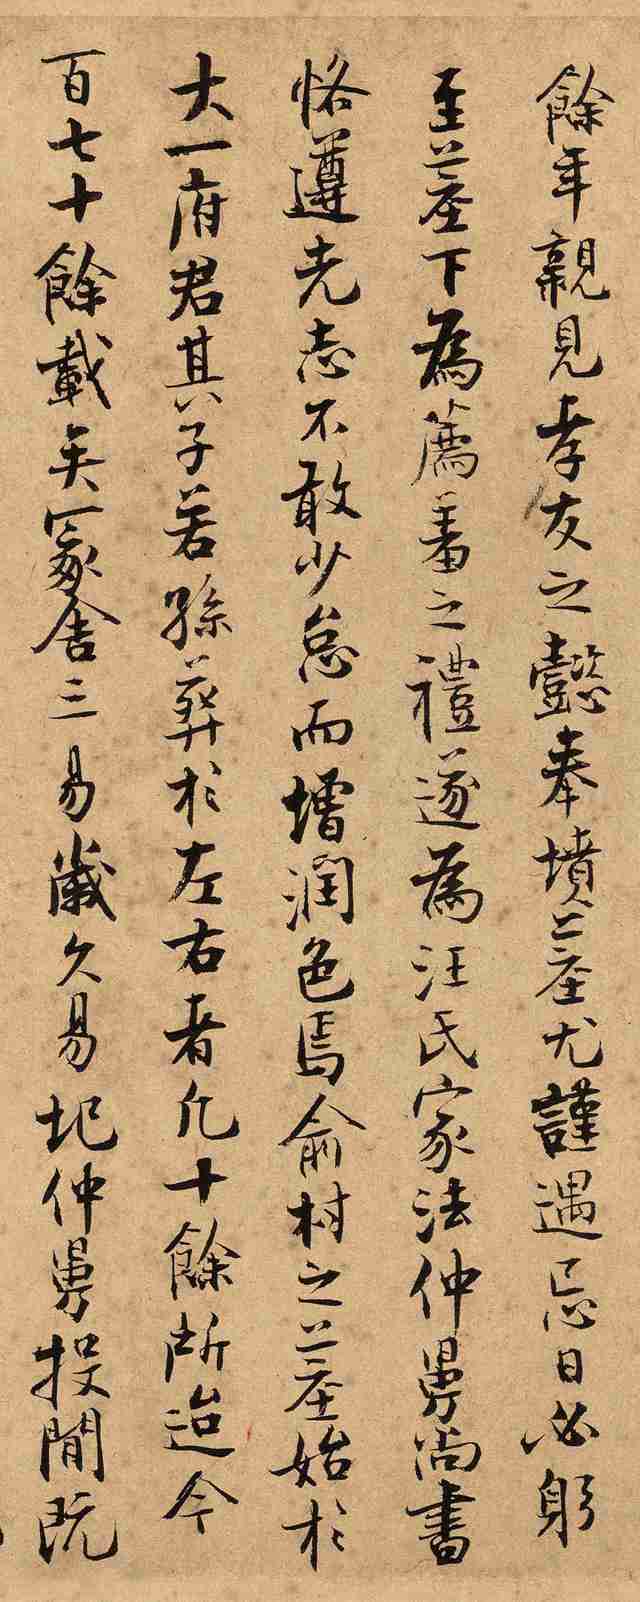 餘年親見孝友之懿奉墳墓尤謹遇忌日必躬
至墓下為薦羞之禮遂為汪氏家法仲舅尚書
恪遵先志不敢少怠而增潤色焉俞村之墓始於
大一府君其子若孫葬於左右者凡十餘所迨今
百七十餘載矣冢舍三易歲久易圮仲舅投閒既